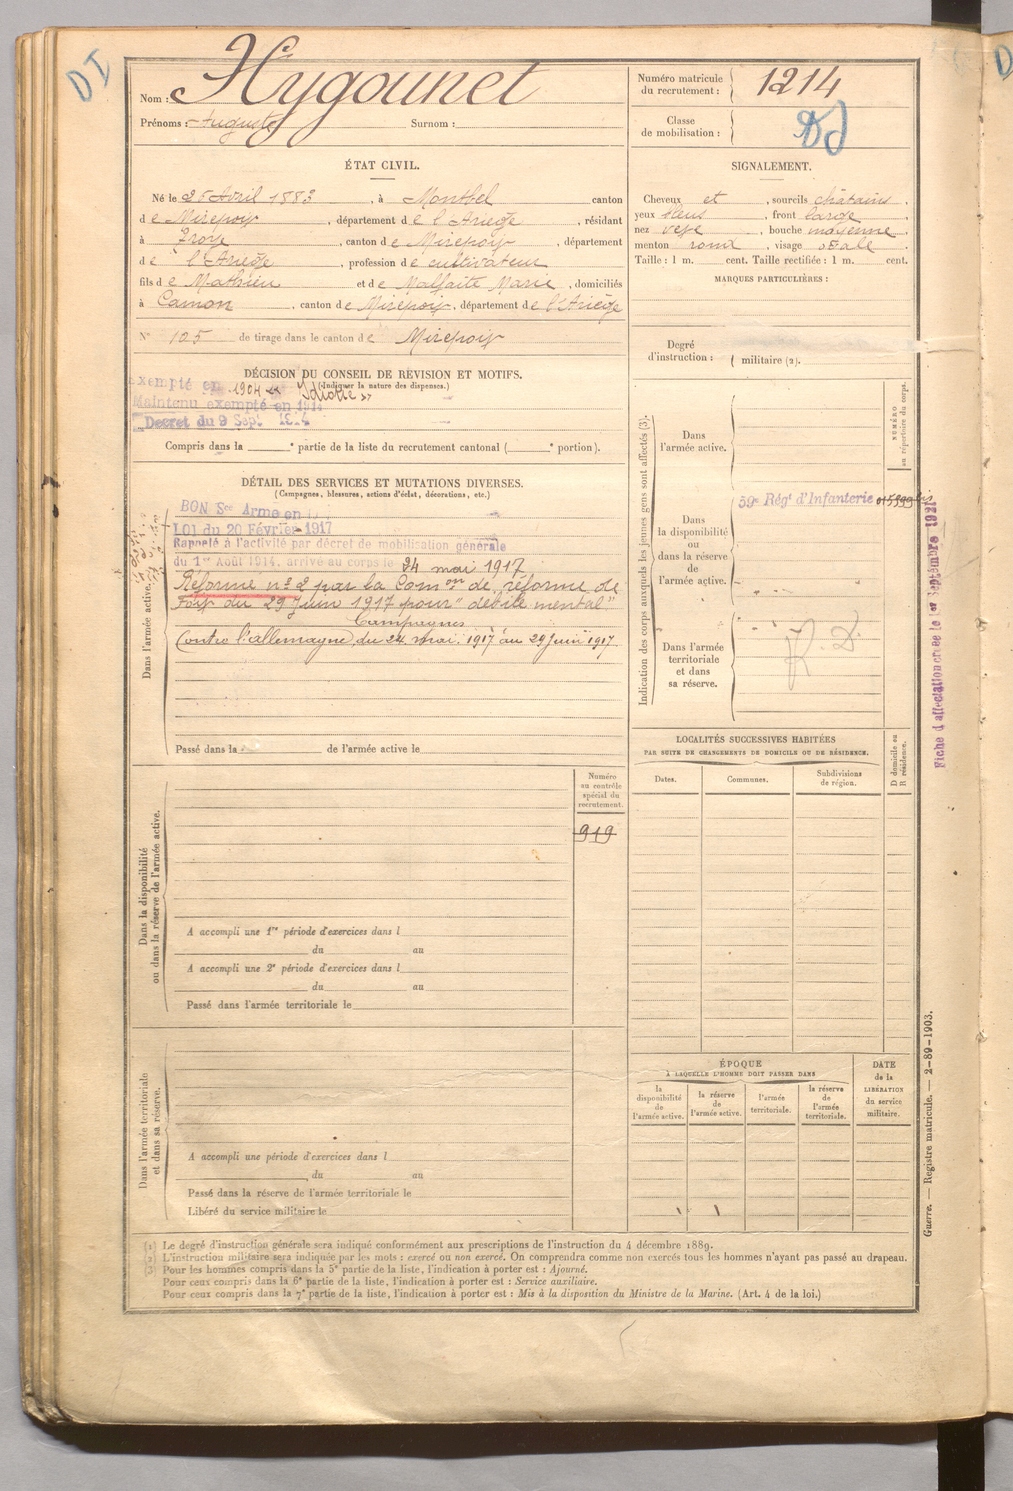 D I
Nom : Hygounet
Prénoms : Auguste Surnom :
Numéro matricule du recrutement : 1214
Classe de mobilisation :
ÉTAT CIVIL.
Né le 26 Avril 1883, à Montbel canton
de Mirepoix, département de l'Ariège, résidant
à Troye, canton de Mirepoix, département
de l'Ariège, profession de cultivateur
fils de Mathieu et de Malfaite Marie, domiciliés
à Camon, canton de Mirepoix, département de l'Ariège
N° 125 de tirage dans le canton de Mirepoix
SIGNALEMENT.
Cheveux et, sourcils châtains,
yeux bleus, front large,
nez, bouche moyenne,
menton rond, visage ovale.
Taille : 1 m. cent. Taille rectifiée : 1 m. cent.
MARQUES PARTICULIÈRES :
Degré d'instruction : militaire (2).
DÉCISION DU CONSEIL DE RÉVISION ET MOTIFS.
(Indiquer la nature des dispenses.)
exempté en 1904
Maintenu exempté en 1914
Decret du 9 Sep. 1914
Compris dans la e partie de la liste du recrutement cantonal ( e portion).
DÉTAIL DES SERVICES ET MUTATIONS DIVERSES.
(Campagnes, blessures, actions d'éclat, décorations, etc.)
BON Sce Armé en
LOI du 20 Février 1917
Rappelé à l'activité par décret de mobilisation générale
du 1er Août 1914. arrivé au corps le 24 mai 1917
Réformé n° 2 par la Comon de réforme de
Foix du 29 Juin 1917 pour "débilé mental"
Campagnes
Contre l'allemagne du 24 mai 1917 au 29 juin 1917
Dans l'armée active.
Passé dans la de l'armée active le
Indication des corps auxquels les jeunes gens sont affectés (3).
Dans l'armée active.
NUMÉRO au répertoire du corps.
59e Régt d'Infanterie 015999 bis
Dans la disponibilité ou dans la réserve de l'armée active.
Dans l'armée territoriale et dans sa réserve.
R. D.
Fiche d'affectation créée le 1er Septembre 1921
LOCALITÉS SUCCESSIVES HABITÉES
PAR SUITE DE CHANGEMENTS DE DOMICILE OU DE RÉSIDENCE.
Dates. Communes. Subdivisions de région.
D domicile ou R résidence.
Dans la disponibilité ou dans la réserve de l'armée active.
Numéro au contrôle spécial du recrutement.
919
A accompli une 1re période d'exercices dans l
du au
A accompli une 2e période d'exercices dans l
du au
Passé dans l'armée territoriale le
Dans l'armée territoriale et dans sa réserve.
A accompli une période d'exercices dans l
du au
Passé dans la réserve de l'armée territoriale le
Libéré du service militaire le
ÉPOQUE
À LAQUELLE L'HOMME DOIT PASSER DANS
la disponibilité de l'armée active.
la réserve de l'armée active.
l'armée territoriale.
la réserve de l'armée territoriale.
DATE de la LIBÉRATION du service militaire.
Guerre. — Registre matricule. — 2-89-1903.
(1) Le degré d'instruction générale sera indiqué conformément aux prescriptions de l'instruction du 4 décembre 1889.
(2) L'instruction militaire sera indiquée par les mots : exercé ou non exercé. On comprendra comme non exercés tous les hommes n'ayant pas passé au drapeau.
(3) Pour les hommes compris dans la 5e partie de la liste, l'indication à porter est : Ajourné.
Pour ceux compris dans la 6e partie de la liste, l'indication à porter est : Service auxiliaire.
Pour ceux compris dans la 7e partie de la liste, l'indication à porter est : Mis à la disposition du Ministre de la Marine. (Art. 4 de la loi.)